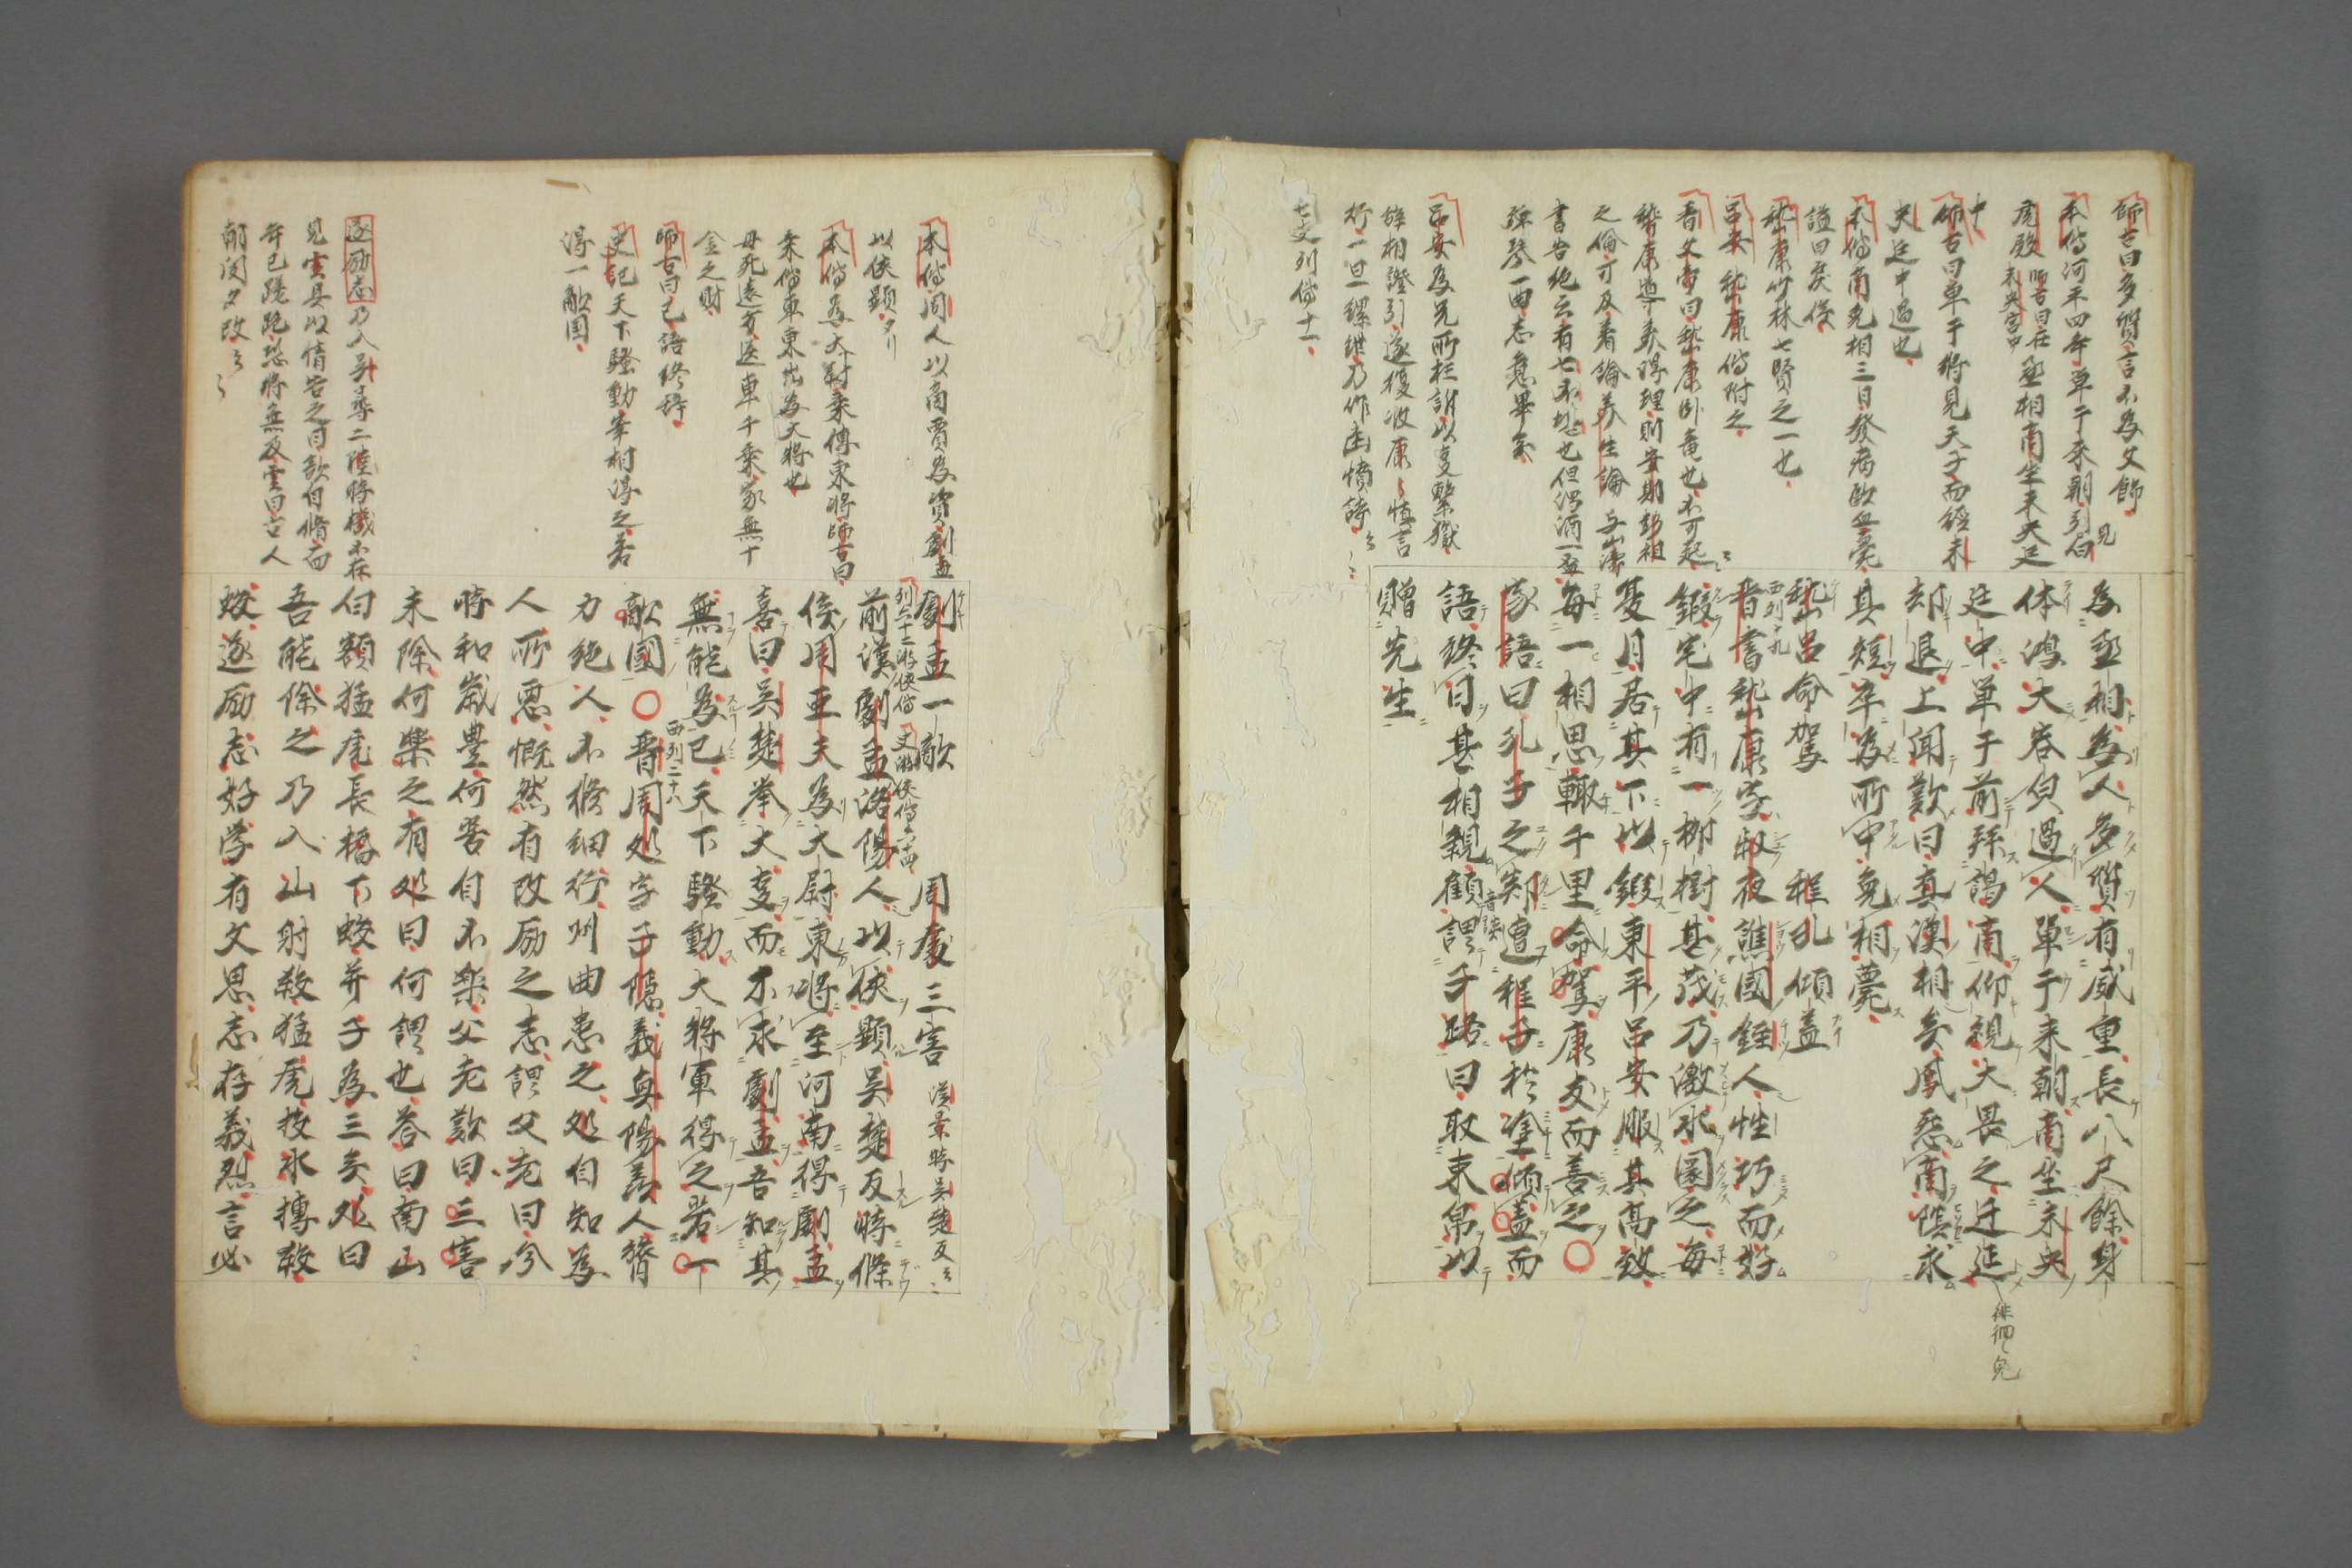 師古曰多質言不為文飾
本傳河平四年單于来朝引白
虎殿 師古曰在未央宮中 丞相商坐未央廷
中
師古曰單于將見天子而經未
央廷中過也
本傳商免相三日發病歐血薨
諡曰戾侯
嵆康竹林七賢之一也
呂安嵆康傳附之
晋文帝曰嵆康臥竜也不可起
嵆康導養得理則安期彭祖
之倫可及著論養生論与山濤
書告絶云有七不堪也但濁酒一盃
弾琴一曲志意畢矣
呂安為兄所枉訴以事繋獄
辞相證引遂復收康康慎言
行一旦縲紲乃作幽憤詩
七史列傳十一
為丞相為人多質有威重長八尺餘身
体鴻大容皃過人單于来朝商坐未央
廷中單于前拜謁商仰視大畏之迁延
却退上聞歎曰真漢相矣鳳怨商陰求
其短卒為所中免相薨
嵆呂命駕 程孔傾盖
晋書嵆康字叔夜譙國銍人性巧而好
鍛宅中有一柳樹甚茂乃激水圜之每
夏月居其下以鍛東平呂安服其高致
每一相思輙千里命駕康友而善之
家語曰孔子之郯遭程子於塗傾盖而
語終日甚相親顧謂子路曰取束帛以
贈先生
徘徊皃
本傳周人以商賈為資劇孟
以侠顕
本傳為大尉乗傳東將師古曰
乗傳車東出為大将也
母死遠方送車千乗家無十
金之財
師古曰已語終辞
史記天下騒動宰相得之若
得一敵国
遂励志乃入呉尋二陸時機不在
見雲具以情告之曰欲自脩而
年已蹉跎恐將無及雲曰古人
朝聞夕改
劇孟一敵 周處三害 漢景時呉楚反
列六十二游侠傳 史游侠傳六十四
前漢劇孟洛陽人以侠顕呉楚反時條
侯周亜夫為大尉東將至河南得劇孟
喜曰呉楚挙大事而不求劇孟吾知其
無能為已天下騒動大将軍得之若一
敵國 晋周処字子隠義興陽羡人膂
力絶人不脩細行州曲患之処自知為
人所悪慨然有改励之志謂父老曰今
時和歳豊何苦自不楽父老歎曰三害
未除何楽之有処曰何謂也荅曰南山
白額猛虎長橋下蛟并子為三矣処曰
吾能除之乃入山射殺猛虎投水搏殺
蛟遂励志好学有文思志存義烈言必